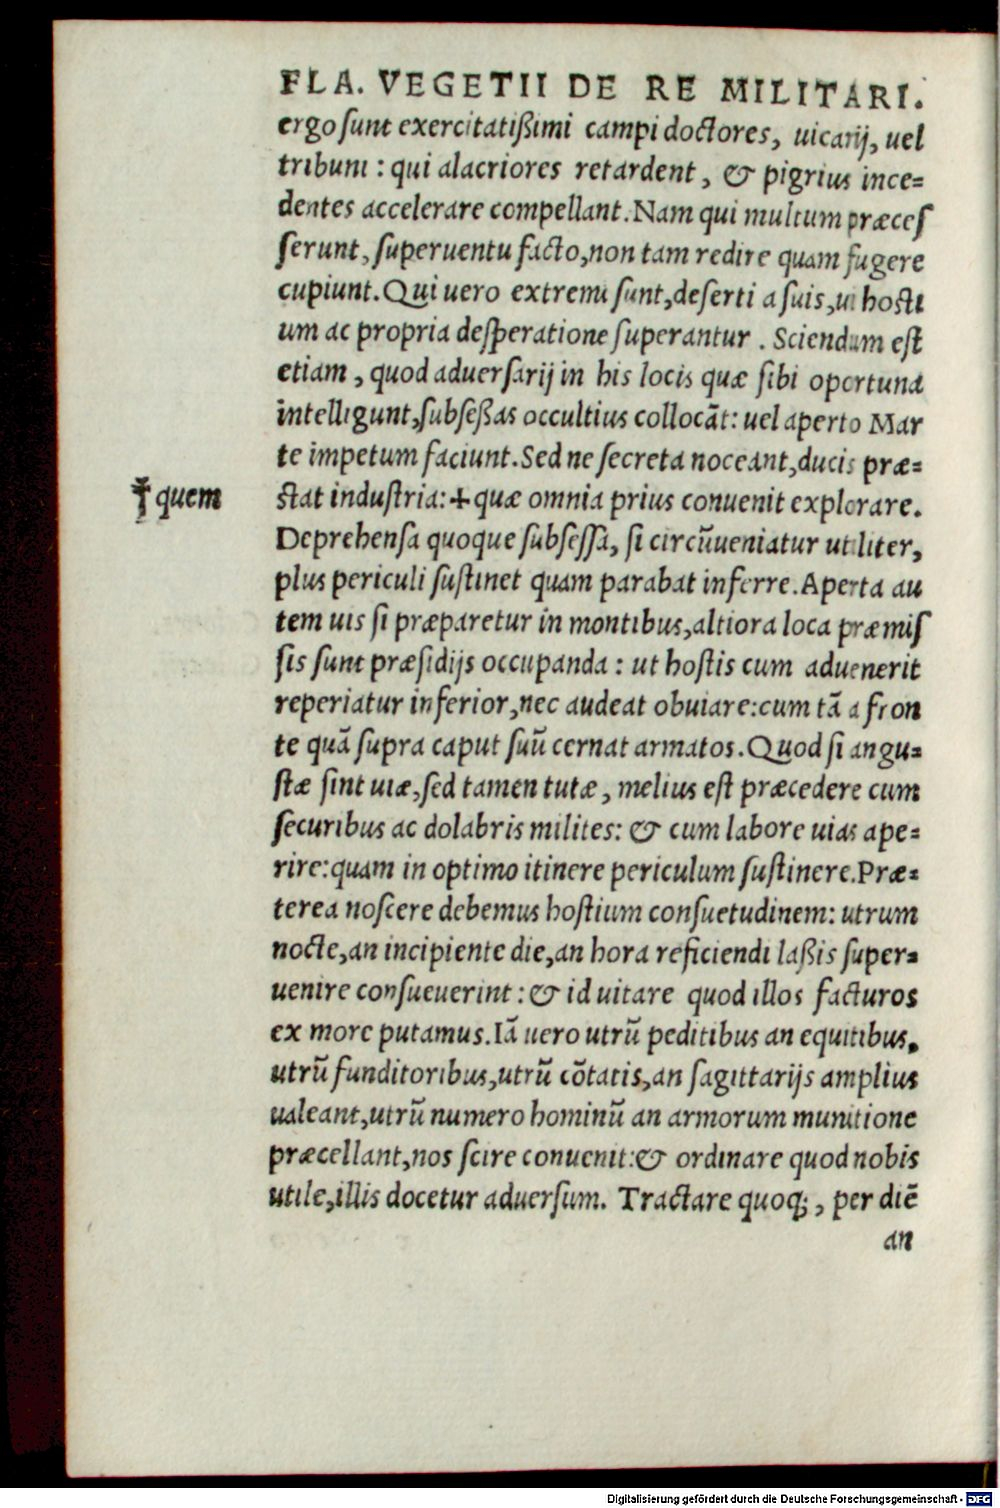 FLA. VEGETII DE RE MILITARI.
ergo ſunt exercitatißimi campi doctores, uicarij, uel
tribuni : qui alacriores retardent, & pigrius ince=
dentes accelerare compellant. Nam qui multum præceſ
ſerunt, ſuperuentu facto, non tam redire quam fugere
cupiunt. Qui uero extremi ſunt, deſerti a ſuis, ui hosti
um ac propria deſperatione ſuperantur . Sciendum eſt
etiam , quod aduerſarij in his locis quæ ſibi oportuna
intelligunt, ſubſeßas occultius collocāt: uel aperto Mar
te impetum faciunt. Sed ne ſecreta noceant, ducis præ=
✝ quem
ſtat induſtria: ✝ quæ omnia prius conuenit explorare.
Deprehenſa quoque ſubſeſſa, ſi circūueniatur utiliter,
plus periculi ſuſtinet quam parabat inferre. Aperta au
tem uis ſi præparetur in montibus, altiora loca præmiſ
ſis ſunt præſidijs occupanda : ut hoſtis cum aduenerit
reperiatur inferior, nec audeat obuiare: cum tā a fron
te quā ſupra caput ſuū cernat armatos. Quod ſi angu=
ſtæ ſint uiæ, ſed tamen tutæ , melius eſt præcedere cum
ſecuribus ac dolabris milites: & cum labore uias ape=
rire: quam in optimo itinere periculum ſuſtinere. Præ=
terea noſcere debemus hoſtium conſuetudinem: utrum
nocte, an incipiente die, an hora reficiendi laßis ſuper=
uenire conſueuerint : & id uitare quod illos facturos
ex more putamus. Iā uero utrū peditibus an equitibus,
utrū funditoribus, utrū cōtatis, an ſagittarijs amplius
ualeant, utrū numero hominū an armorum munitione
præcellant, nos ſcire conuenit: & ordinare quod nobis
utile, illis docetur aduerſum. Tractare quoq; , per diē
an
Digitalisierung gefördert durch die Deutsche Forschungsgemeinschaft - DFG